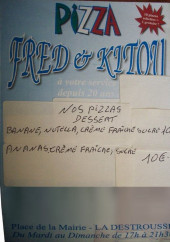 PIZZA
FRED & KITOU
à votre service
depuis 20 ans
NOS PIZZAS
DESSERT
BANANE, NUTELLA, CRÈME FRAÎCHE SUCRE
ANANAS, CRÈME FRAÎCHE, SUCRE
10€
Place de la Mairie - LA DESTROUSSE
Du Mardi au Dimanche de 17h à 21h